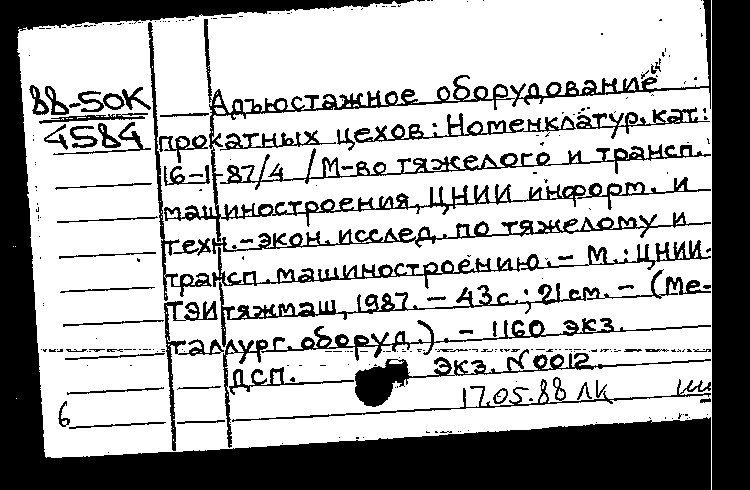 88-50К
4584
Адъюстажное оборудование
прокатных цехов: Номенклатур. кат.:
16-1-87/4 / М-во тяжелого и трансп.
машиностроения, ЦНИИ информ. и
техн.-экон. исслед. по тяжелому и
трансп. машиностроению. – М.: ЦНИИ-
ТЭИтяжмаш, 1987. – 43 с.; 21 см. – (Ме-
таллург. оборуд.). – 1160 экз.
ДСП. Экз. N 0012.
17.05.88 ЛК
6